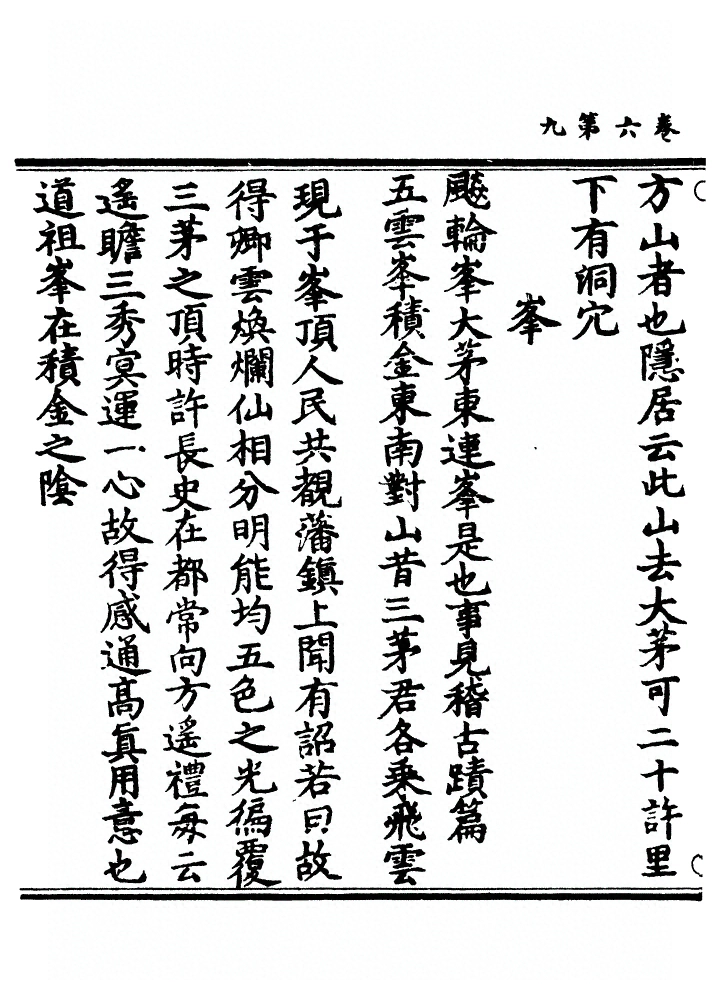 卷六第九
方山者也隱居云此山去大茅可二十許里
下有洞穴
峯
飈輪峯大茅東連峯是也事見稽古蹟篇
五雲峯積金東南對山昔三茅君各乗飛雲
現于峯頂人民共覩藩鎮上聞有詔若曰故
得卿雲煥爛仙相分明能均五色之光徧覆
三茅之頂時許長史在都常向方遙禮每云
遙瞻三秀冥運一心故得感通高眞用意也
道祖峯在積金之陰